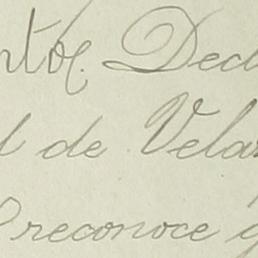 ntos. Decl
l de Velar
reconoce q